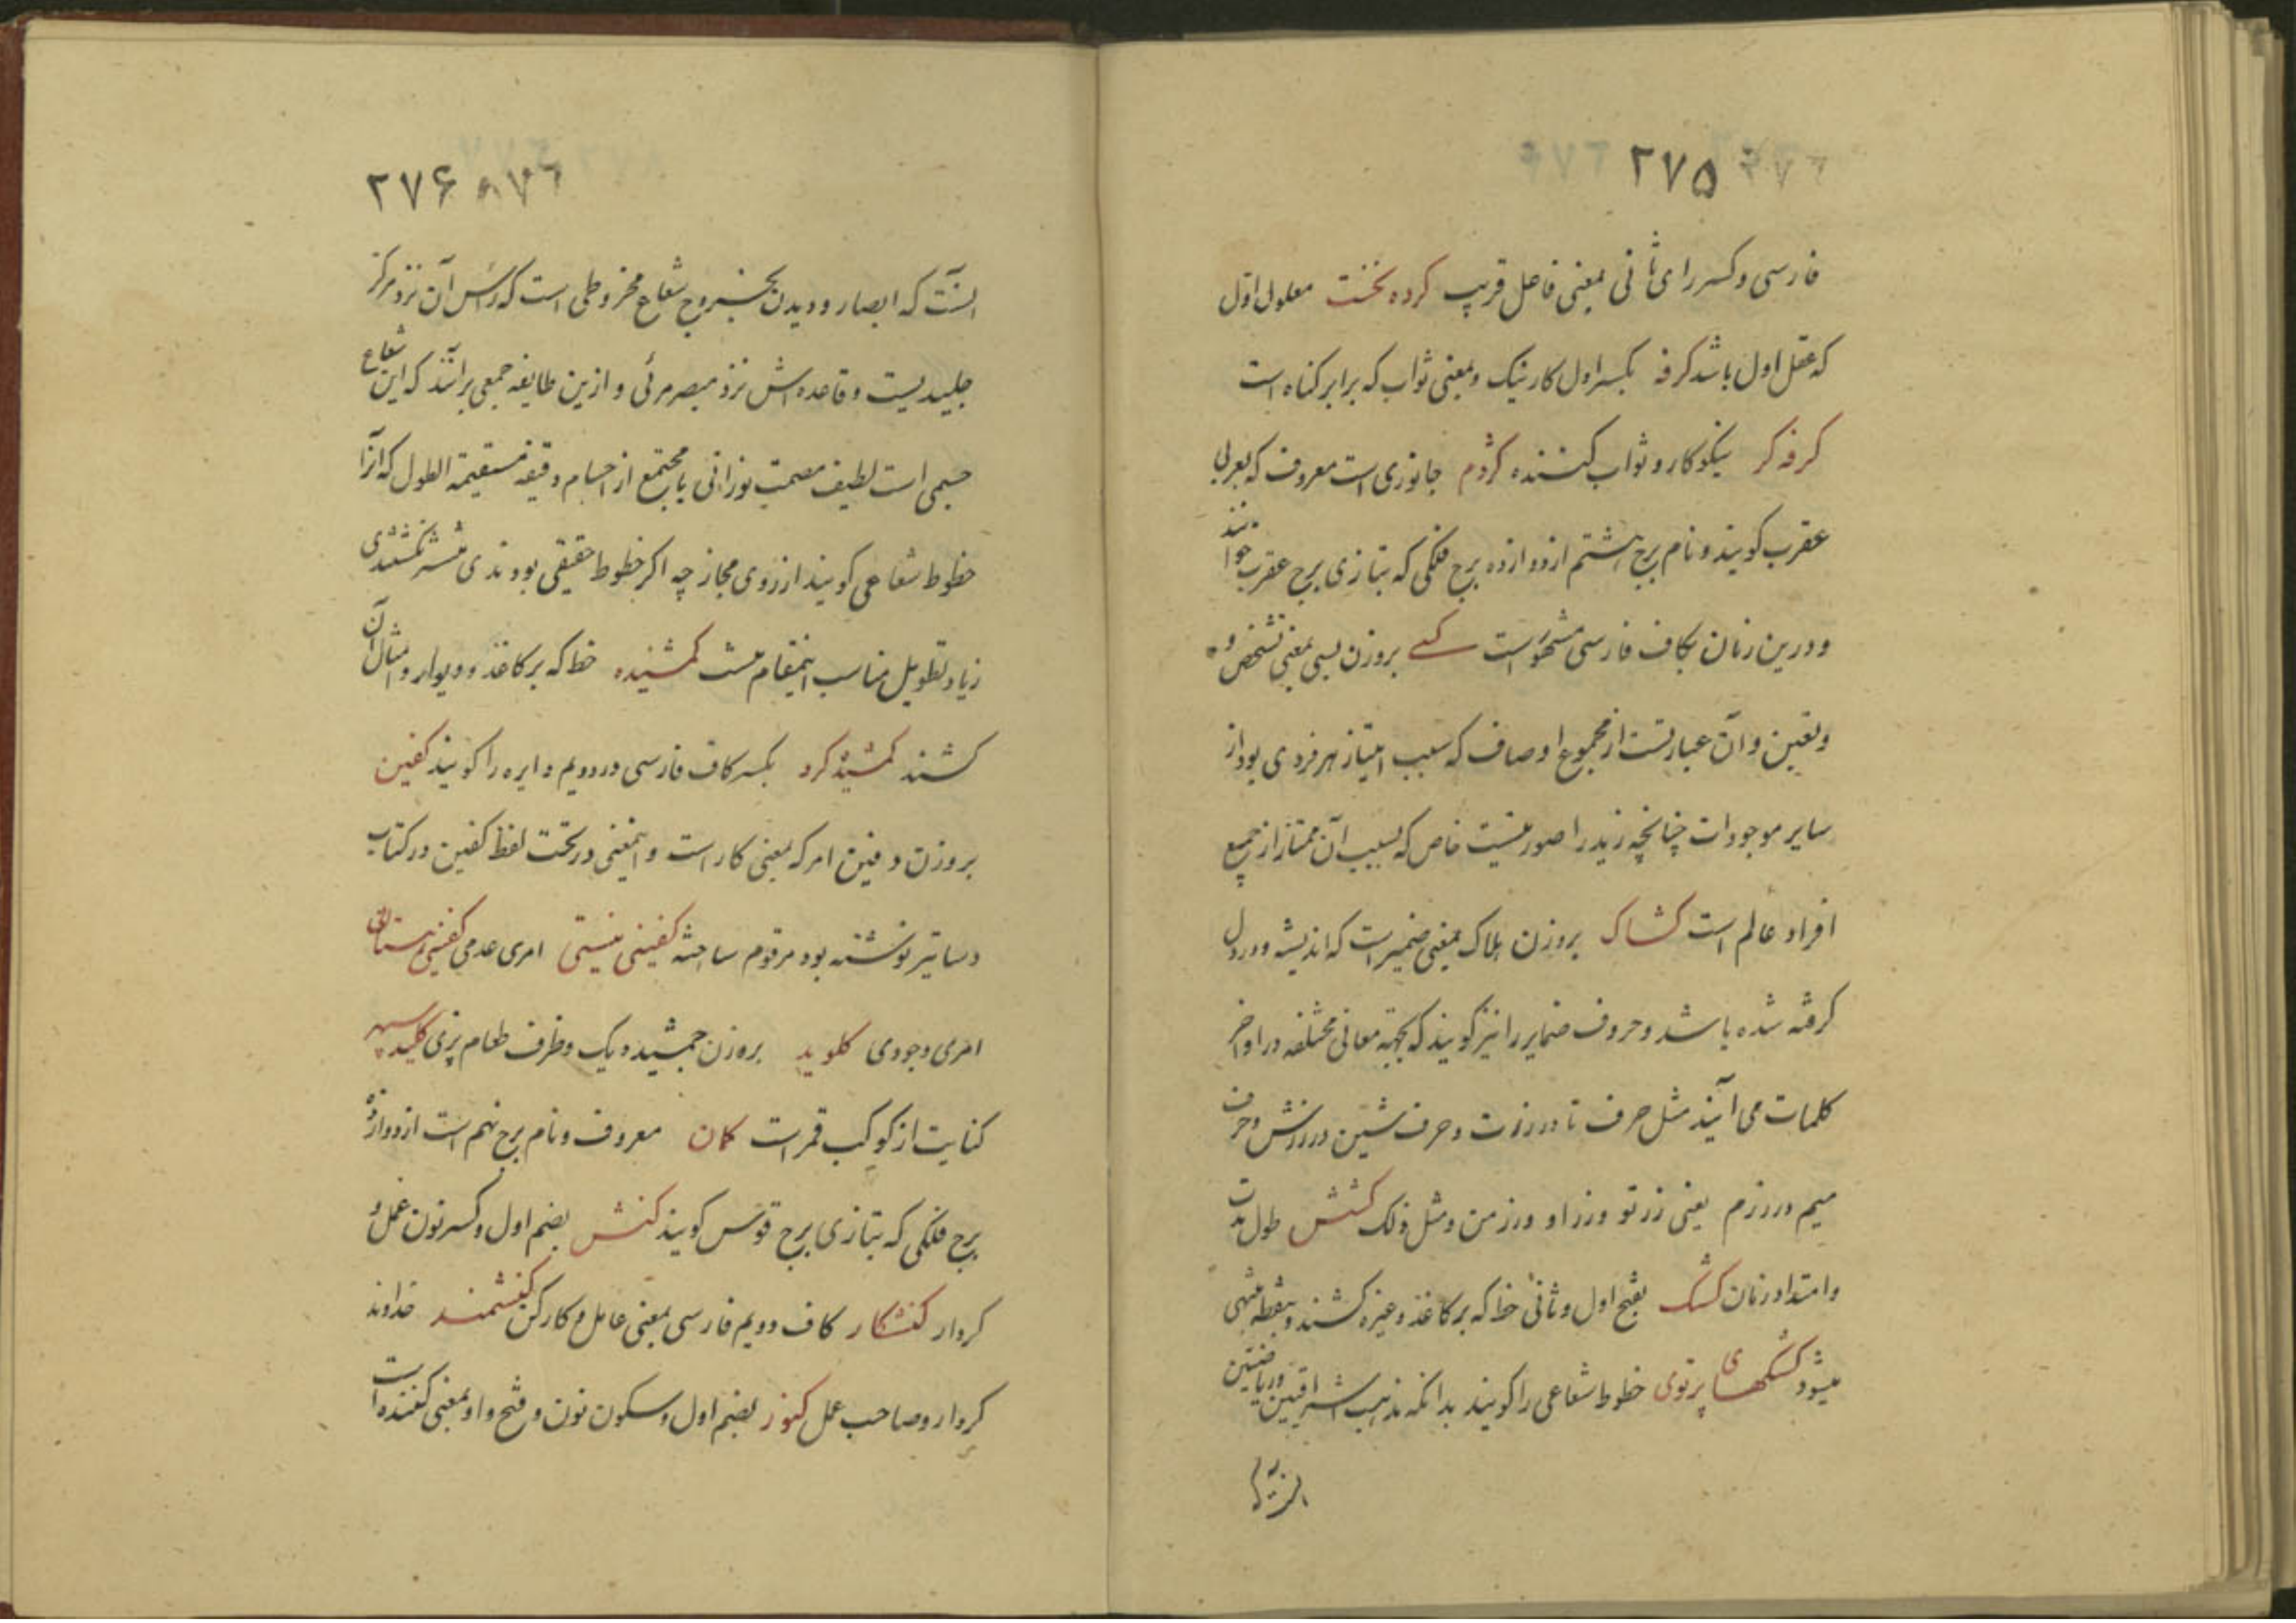 ۲۷۵
فارسی و کسر رای ثانی بمعنی فاعل قریب کرده نخست معلول اول
که عقل اول باشد کرفه بکسر اول کار نیک و بمعنی ثواب که برابر کناه است
کرفه کر نیکو کار و ثواب کننده کژدم جانوری است معروف که بعربی
عقرب کویند و نام برج هشتم از دوازده برج فلکی که بتازی برج عقرب خوانند
و درین زمان بکاف فارسی مشهور است کسے بروزن بسی بمعنی تشخص و
و تعین و آن عبارتست از مجموع اوصاف که سبب امتیاز هر فردی بود از
سایر موجودات چنانچه زید را صورتیست خاص که بسبب آن ممتاز از جمیع
افراد عالم است کشاک بروزن هلاک بمعنی ضمیر است که اندیشه و در دل
کرفته شده باشد و حروف ضمایر را نیز کویند که بجهته معانی مختلفه در اواخر
کلمات می آیند مثل حرف تا در رزت و حرف شین در رزش و حرف
میم در رزم یعنی رز تو و رز او و رز من و مثل ذلک کشش طول مدت
و امتداد زمان کشک بفتح اول و ثانی خط که بر کاغذ و غیره کشند و بنقطه منتهی
میشود کشکهای پرتوی خطوط شعاعی را کویند بدانکه مذهب اشراقیین و ریاضیین
اینست
۲۷۶ ۸۷۶
اینست که ابصار و دیدن بخروج شعاع مخروطی است که رأس آن نزد مرکز
جلیدیست و قاعده اش نزد مبصر مرئی و ازین طایفه جمعی برانند که این شعاع
جسمی است لطیف مصمت نورانی یا مجتمع از اجسام دقیقه مستقیمة الطول که آنرا
خطوط شعاعی کویند از روی مجاز چه اکر خطوط حقیقی بودندی منتشر نکشتندی
زیاد تطویل مناسب اینمقام نیست کمشیده خط که بر کاغذ و دیوار و امثال آن
کشند کمشیده کرد بکسر کاف فارسی در دویم دایره را کویند کفین
بروزن دفین امر که بمعنی کار است و اینمعنی در تحت لفظ کفین در کتاب
دساتیر نوشته بود مرقوم ساخته کفینی نیستی امری عدمی کفینی هستائی
امری وجودی کلوید بروزن جمشید دیک و ظرف طعام پزی کلید سپهر
کنایت از کوکب قمر است کمان معروف و نام برج نهم است از دوازده
برج فلکی که بتازی برج قوس کویند کنش بضم اول و کسر نون عمل و
کردار کنشکار کاف دویم فارسی بمعنی عامل و کارکن کنشمند خداوند
کردار و صاحب عمل کنور بضم اول و سکون نون و فتح واو بمعنی کننده است